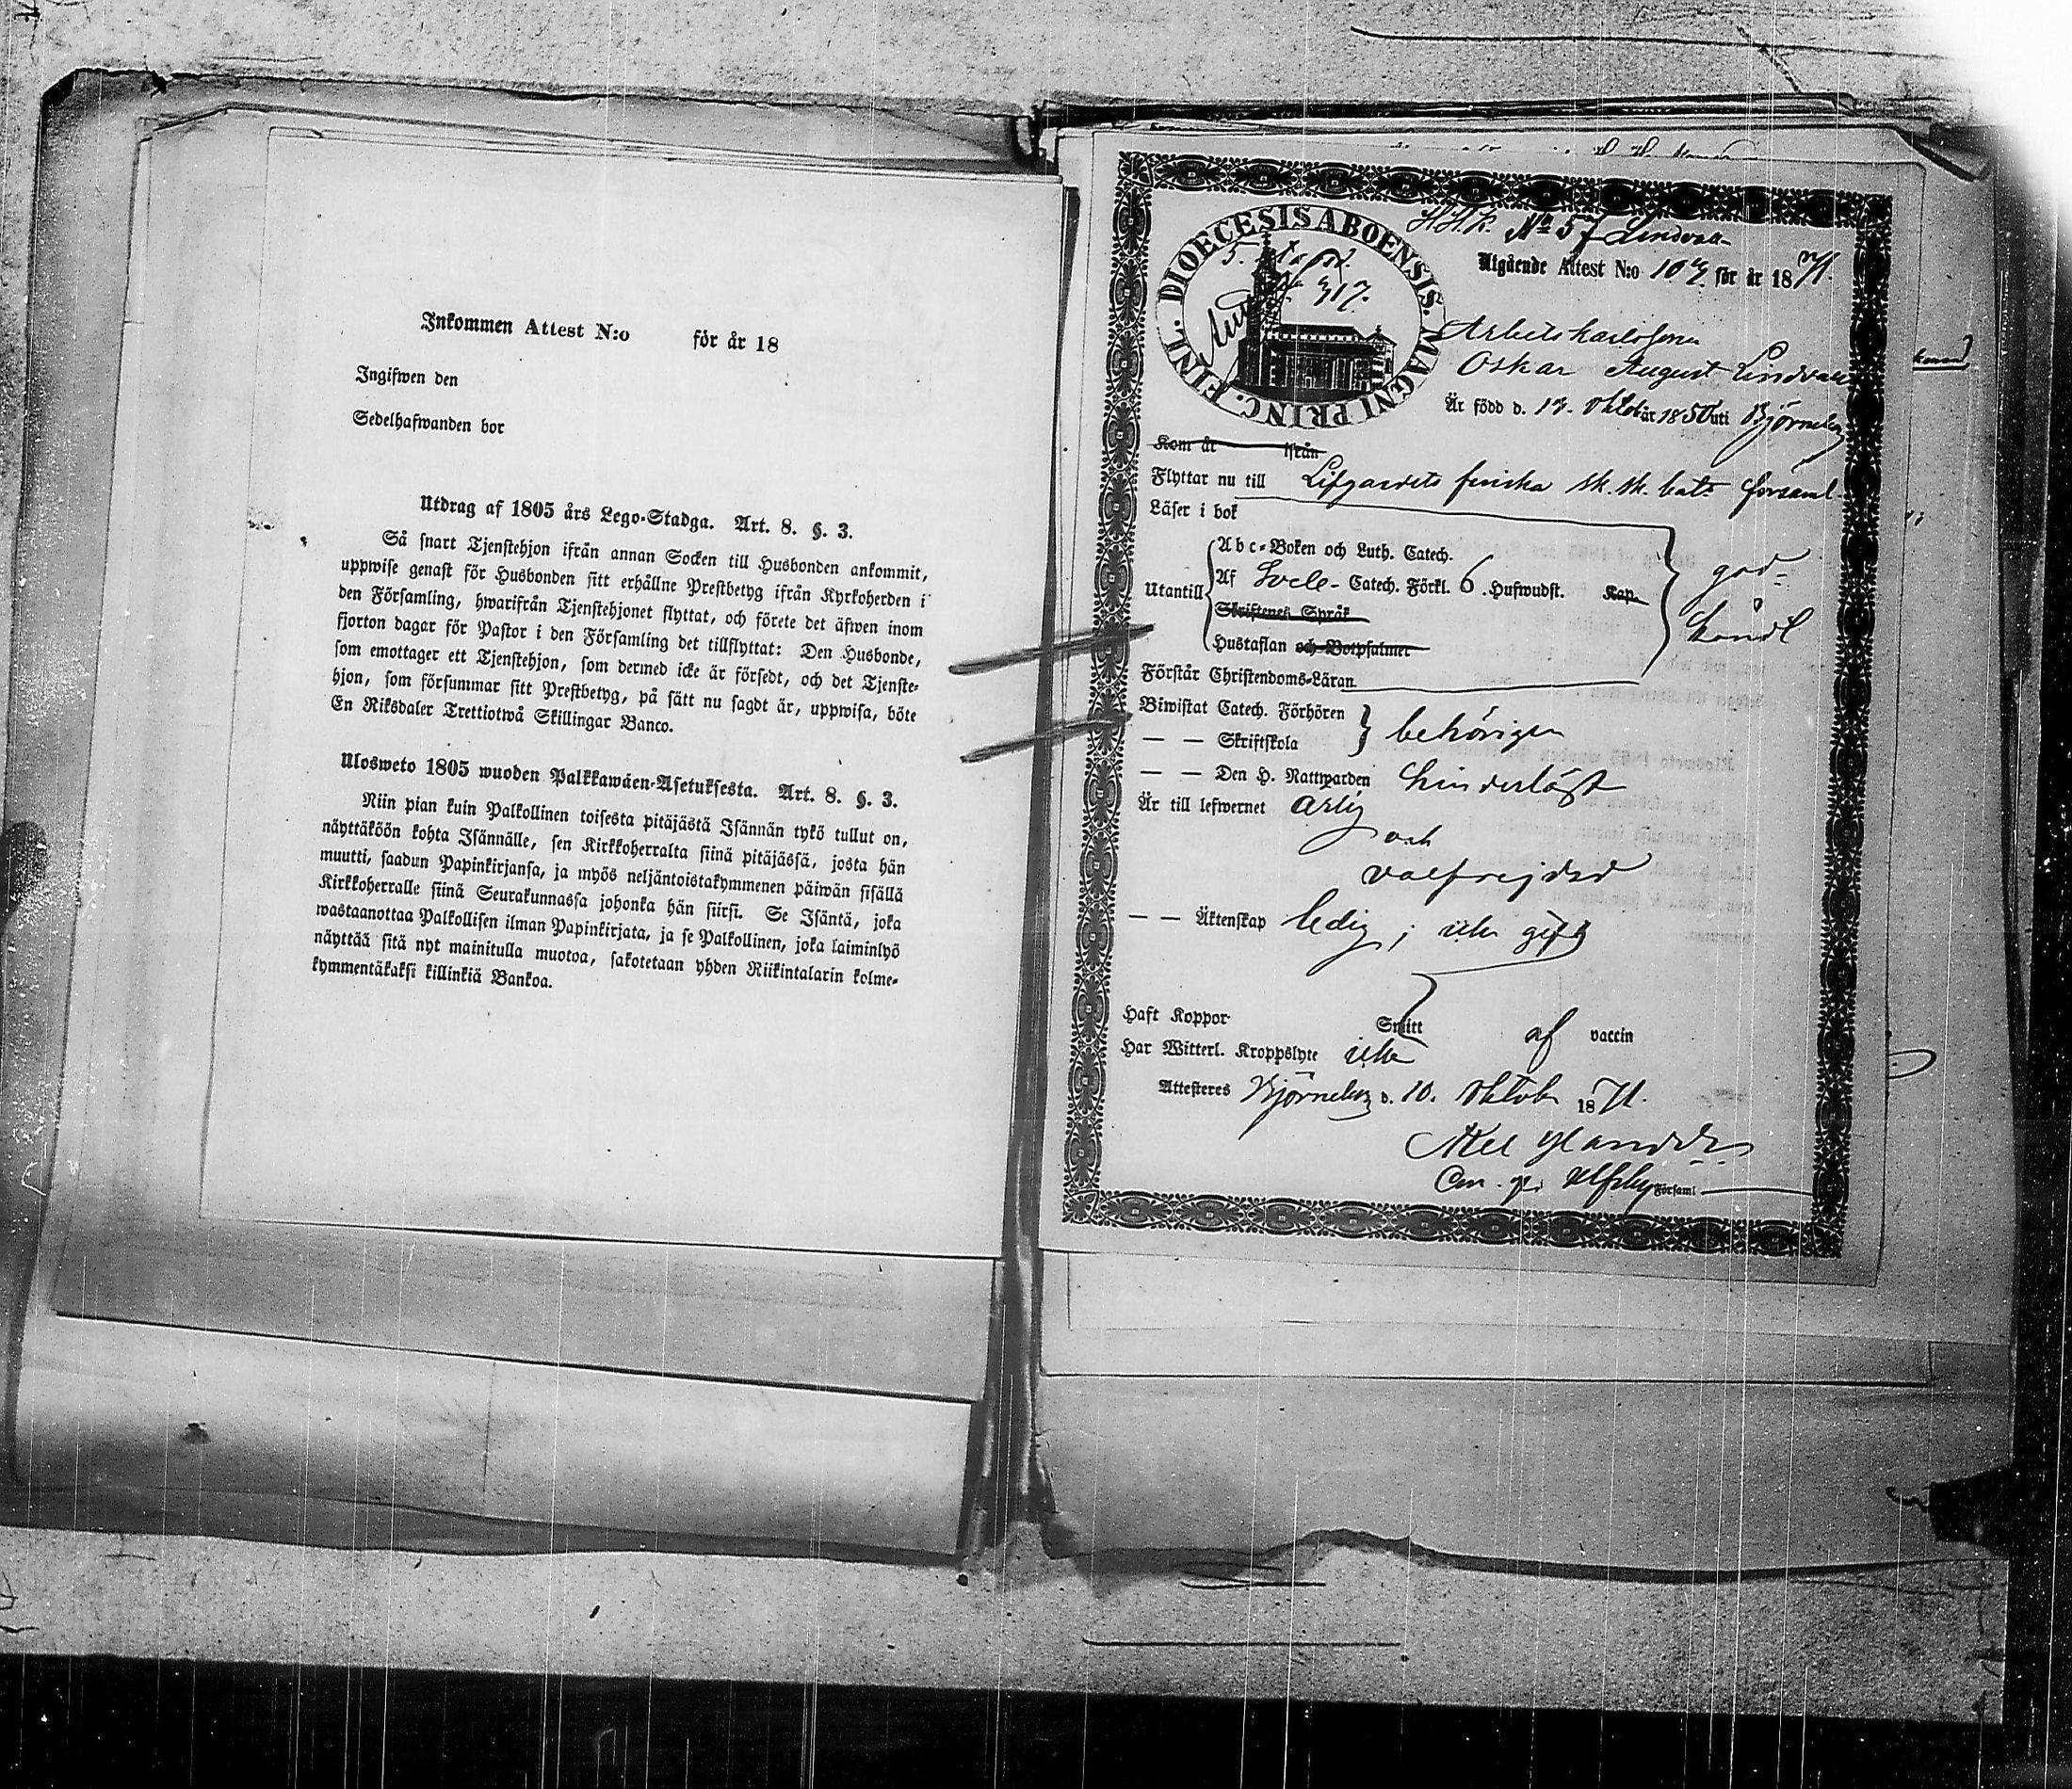 Inkommen Attest N:o för år 18
Ingifwen den
Sedelhafwanden bor
Utdrag af 1805 års Lego-Stadga. Art. 8. §. 3.
Så snart Tjenstehjon ifrån annan Socken till Husbonden ankommit,
uppwise genast för Husbonden sitt erhållne Prestbetyg ifrån Kyrkoherden i
den Församling, hwarifrån Tjenstehjonet flyttat, och förete det äfwen inom
fjorton dagar för Pastor i den Församling det tillflyttat: Den Husbonde,
som emottager ett Tjenstehjon, som dermed icke är försedt, och det Tjenste-
hjon, som försummar sitt Prestbetyg, på sätt nu sagdt är, uppwisa, böte
En Riksdaler Trettiotwå Skillingar Banco.
Ulosweto 1805 wuoden Palkkawäen-Asetuksesta. Art. 8. §. 3.
Niin pian kuin Palkollinen toisesta pitäjästä Isännän tykö tullut on,
näyttäköön kohta Isännälle, sen Kirkkoherralta siinä pitäjässä, josta hän
muutti, saadun Papinkirjansa, ja myös neljäntoistakymmenen päiwän sisällä
Kirkkoherralle siinä Seurakunnassa johonka hän siirsi. Se Isäntä, joka
wastaanottaa Palkollisen ilman Papinkirjata, ja se Palkollinen, joka laiminlyö
näyttää sitä nyt mainitulla muotoa, sakotetaan yhden Riikintalarin kolme-
kymmentäkaksi killinkiä Bankoa.
DIOECESIS ABOENSIS. MAGNI PRINC. FINL.
No 57 Lindvall
Utgående Attest N:o 107 för år 1871.
Arbetskarlssonen
Oskar August Lindvall
Är född d. 17. Oktob år 1850 uti Björneborg
Kom år ifrån
Flyttar nu till Lifgardets finska sk. sk. bat: församl.
Läser i bok
Abc-Boken och Luth. Catech.
Utantill Af Svebe- Catech. Förkl. 6. Hufwudst. Kap.
Skriftenes Språk
Hustaflan och Botpsalmer
god-
känd
Förstår Christendoms-Läran
Biwistat Catech. Förhören
— — Skriftskola behörigen
— — Den H. Nattwarden hinderlöst
Är till lefwernet ärlig
och
välfrejdad
— — Äktenskap ledig; icke gift
Haft Koppor Smitt af vaccin
Har Witterl. Kroppslyte icke
Attesteres Björneborg d. 10. Oktob 1871.
Ulfsby Församl